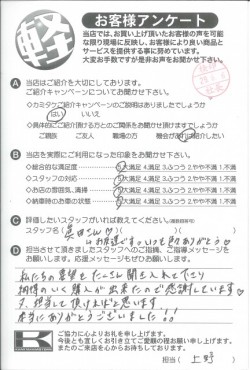 軽
お客様アンケート
当店では、お買い上げ頂いたお客様の声を可能
な限り現場に反映し、お客様により良い商品と
サービスを提供する事に努めています。
大変お手数ですが是非お声をお聞かせ下さい。
A 当店はご紹介を大切にしております。
ご紹介キャンペーンについてお聞かせ下さい。
◇カミタケご紹介キャンペーンのご説明はありましたでしょうか
はい いいえ
◇具体的にご紹介頂ける方とのご関係をお聞かせ頂けますでしょうか
ご親族 ご友人 職場の方 機会があれば紹介したい
B 当店を実際にご利用になった印象をお聞かせ下さい。
◇総合的な満足度 5大満足 4.満足 3.ふつう 2.やや不満 1.不満
◇スタッフの対応 5大満足 4.満足 3.ふつう 2.やや不満 1.不満
◇お店の雰囲気、清掃 5大満足 4.満足 3.ふつう 2.やや不満 1.不満
◇納車時のお車の状態 5大満足 4.満足 3.ふつう 2.やや不満 1.不満
C 評価したいスタッフがいれば教えてください。
スタッフ名
D 担当させて頂きましたスタッフへのご指摘、ご意見を
お願いします。応援メッセージもぜひお願いします。
私たちの要望を たくさん 聞き入れて下さり
納得のいく購入が出来たので感謝しています
又、担当して頂ければと思います。
本当にありがとうございました!!
K
ご協力に心よりお礼を申し上げます。
今後とも宜しくお引き立てご愛顧の程お願い申し上げます。
またのご来店を心からお待ちしております。
担当( 上野 )